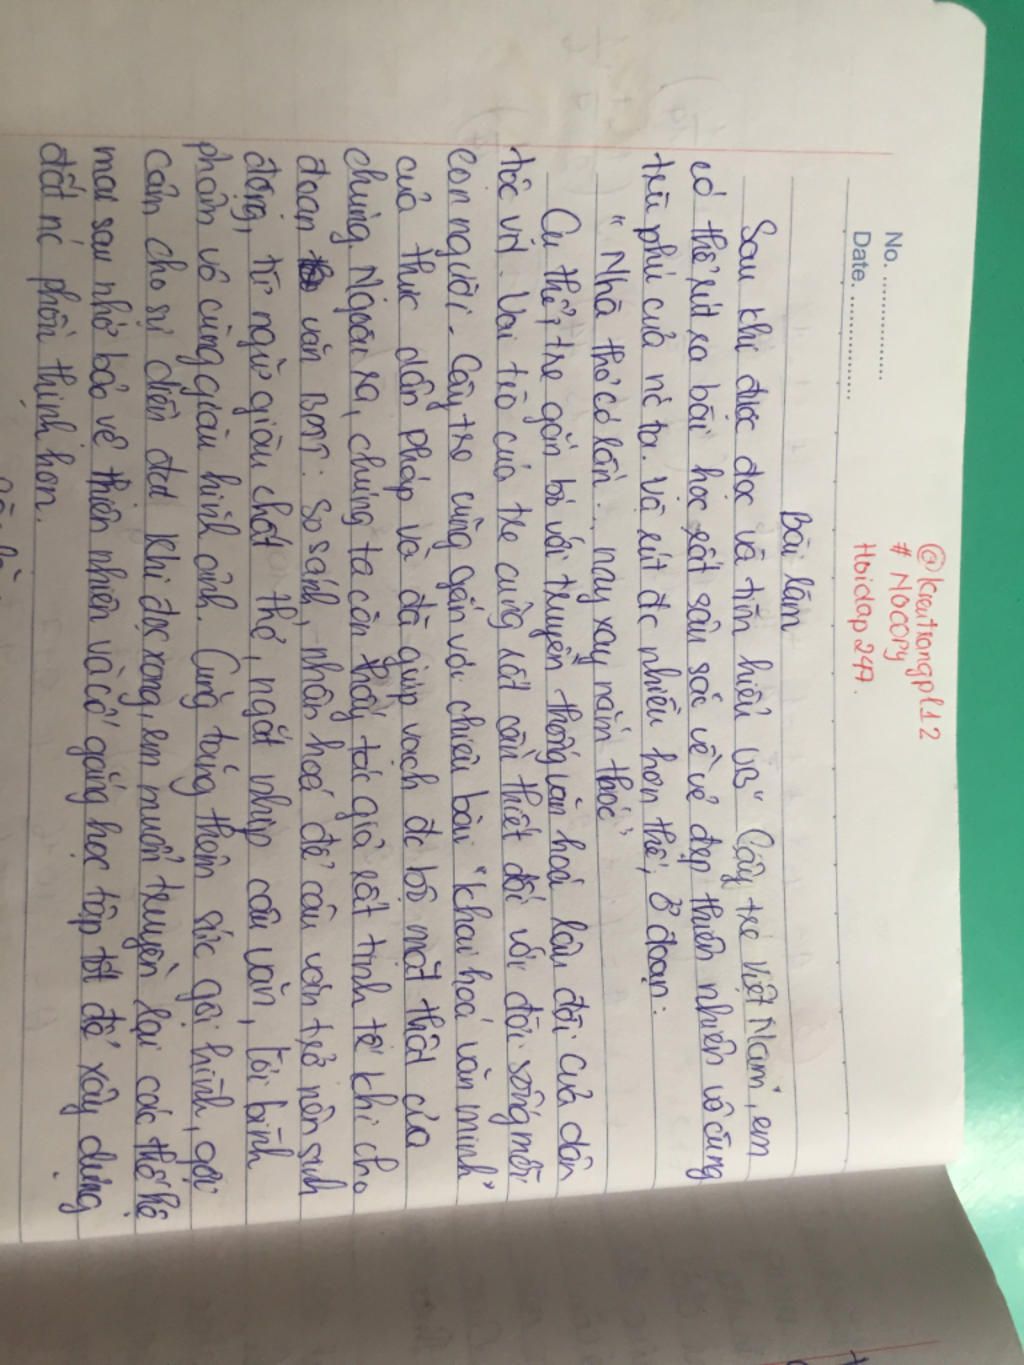 No. ................
Date. ................
@kieutrongpl12
# NOCOPY
Hoidap247.
Bài làm
Sau khi được đọc và tìm hiểu VB " Cây tre Việt Nam", em
có thể rút ra bài học rất sâu sắc về vẻ đẹp thiên nhiên vô cùng
trù phú của nc ta. Và rút đc nhiều hơn thế, ở đoạn:
" Nhà thơ có lần... nay xay nắm thóc"
Cụ thể, tre gắn bó với truyền thống văn hoá lâu đời của dân
tộc VN. Vai trò của tre cũng rất cần thiết đối với đời sống mỗi
con người. Cây tre cũng gắn với chiêu bài "khai hoá văn minh"
của thực dân pháp và đã giúp vạch đc bộ mặt thật của
chúng. Ngoài ra, chúng ta còn thấy tác giả rất tinh tế khi cho
đoạn văn BPTT: So sánh, nhân hoá để câu văn trở nên sinh
động, từ ngữ giàu chất thơ, ngắt nhịp câu văn, lời bình
phẩm vô cùng giàu hình ảnh. Cũng tăng thêm sức gợi hình, gợi
cảm cho sự diễn đạt. Khi đọc xong, em muốn truyền lại các thế hệ
mai sau nhớ bảo vệ thiên nhiên và cố gắng học tập tốt để xây dựng
đất nc phồn thịnh hơn.